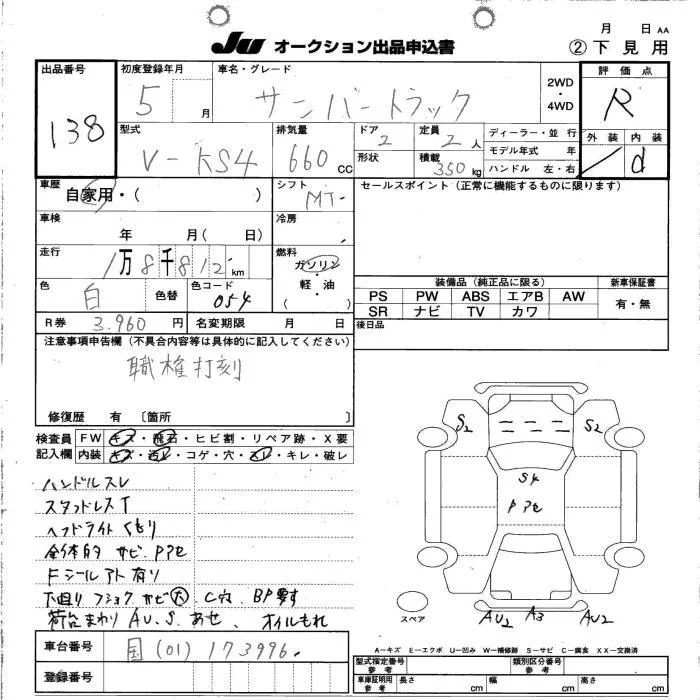 月 日 AA
JU オークション出品申込書 ② 下見用
出品番号 138
初度登録年月 5 月
車名・グレード サンバートラック
2WD・4WD
評価点 R
外装 / 内装 d
型式 V-KS4
排気量 660 cc
ドア 2
定員 2 人
形状
積載 350 kg
ディーラー・並行
モデル年式 年
ハンドル 左・右
車歴 自家用・( )
シフト MT-
セールスポイント(正常に機能するものに限ります)
車検 年 月( 日)
冷房
走行 1万8千812 km
燃料 ガソリン 軽・油 ( )
色 白 色替 色コード 054
装備品(純正品に限る) 新車保証書
PS PW ABS エアB AW 有・無
SR ナビ TV カワ
R券 3.960 円 名変期限 月 日
後日品
注意事項申告欄(不具合内容等は具体的に記入してください)
職権打刻
修復歴 有 〔箇所
検査員記入欄
FW キズ・飛石・ヒビ割・リペア跡・X要
内装 キズ・汚レ・コゲ・穴・スレ・キレ・破レ
ハンドルスレ
スタッドレスT
ヘッドライトくもり
全体的 サビ、Pアセ
Fシールアト有り
下廻り フショク サビ大 C穴 BP要す
荷台まわり AU.S.あせ、オイルもれ
S2 ニ ニ ニ S2
S4
Pアセ
スペア
AU2 A3 AU2
車台番号 国(01)173996.
登録番号
A−キズ E−エクボ U−凹み W−補修跡 S−サビ C−腐食 XX−交換済
型式指定番号 参考 類別区分番号 参考
車庫証明用 参考 長さ cm 幅 cm 高さ cm